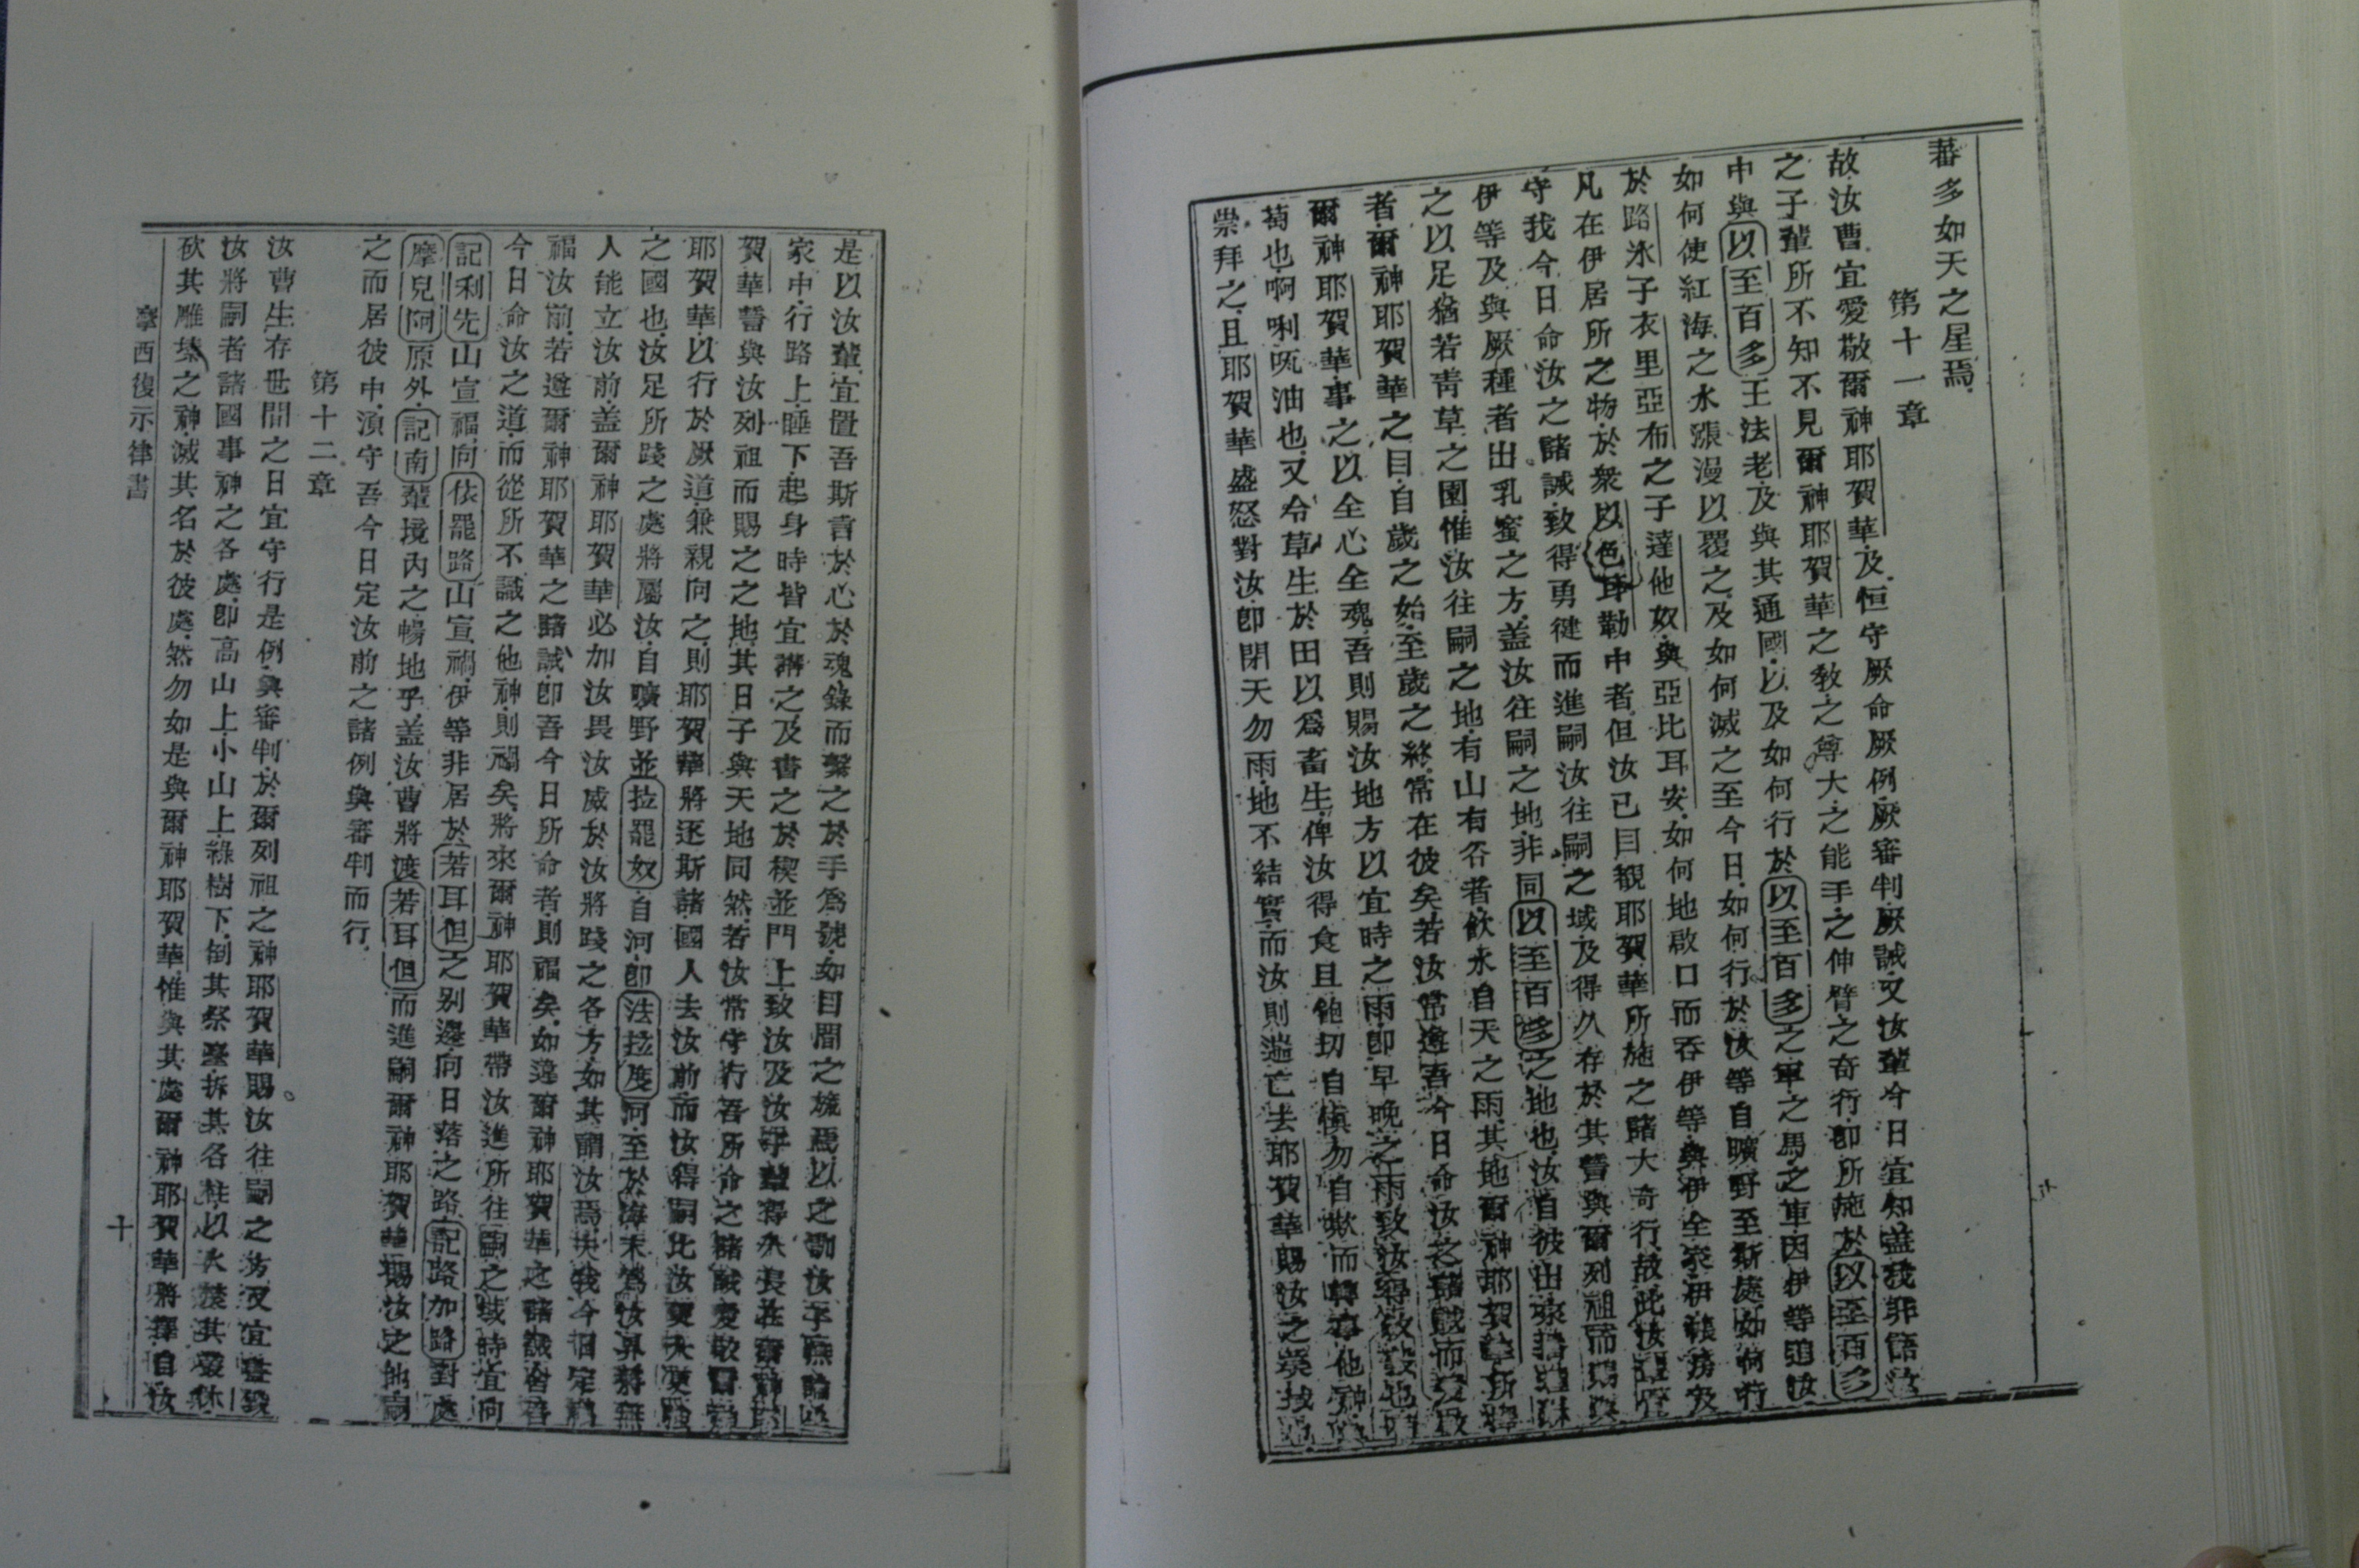 蕃多如天之星焉
第十一章
故汝曹宜愛敬爾神耶賀華及恒守厥命厥例厥審判厥誡又汝輩今日宜知蓋我非語汝
之子輩所不知不見爾神耶賀華之教之尊大之能手之伸臂之奇行即所施於以至百多
中與以至百多王法老及與其通國以及如何行於以至百多之軍之馬之車因伊等追汝
如何使紅海之水漲漫以覆之及如何滅之至今日如何行於汝等自曠野至斯處如何行
於路氷子衣里亞布之子達他奴與亞比耳安如何地啟口而吞伊等與伊全家伊帳房及
凡在伊居所之物於衆以色耳勒中者但汝已目覩耶賀華所施之諸大奇行故此汝
守我今日命汝之諸誡致得勇健而進嗣汝往嗣之域及得久存於其誓與爾列祖而賜與
伊等及與厥種者出乳蜜之方蓋汝往嗣之地非同以至百多之地也汝自彼出來
之以足猶若靑草之園惟汝往嗣之地有山有谷者飲水自天之雨其地爾神耶賀華所
者爾神耶賀華之目自歲之始至歲之終常在彼矣若汝常遵吾今日命汝之諸誡而
爾神耶賀華事之以全心全魂吾則賜汝地方以宜時之雨即早晩之雨致汝得收
萄也啊唎𠰋油也又令草生於田以爲畜生俾汝得食且飽切自愼勿自欺而轉事他神
崇拜之且耶賀華盛怒對汝即閉天勿雨地不結實而汝則遄亡去耶賀華賜汝之美
是以汝輩宜置吾斯言於心於魂錄而繫之於手爲號如目眉之旒焉以之訓汝子
家中行路上睡下起身時皆宜講之及書之於楔並門上致汝及汝子輩得久長在爾神耶
賀華誓與汝列祖而賜之之地其日子與天地同然若汝常守行吾所命之諸誡愛敬爾神
耶賀華以行於厥道兼親向之則耶賀華將逐斯諸國人去汝前而汝得嗣比汝更大更
之國也汝足所踐之處將屬汝自曠野並拉罷奴自河即法拉度河至於海末爲汝界將無
人能立汝前蓋爾神耶賀華必加汝畏汝威於汝將踐之各方如其謂汝焉夫我今日定
福汝前若遵爾神耶賀華之諸誡即吾今日所命者則福矣如違爾神耶賀華之諸誡舍吾
今日命汝之道而從所不識之他神則禍矣將來爾神耶賀華帶汝進所往嗣之域時宜向
記利先山宣福向依罷路山宣禍伊等非居於若耳但之别邊向日落之路記路加路對處
摩兒阿原外記南輩境內之暢地乎蓋汝曹將渡若耳但而進嗣爾神耶賀華賜汝之地嗣
之而居彼中湏守吾今日定汝前之諸例與審判而行
第十二章
汝曹生存世間之日宜守行是例與審判於爾列祖之神耶賀華賜汝往嗣之方又宜盡毀
汝將嗣者諸國事神之各處即高山上小山上綠樹下倒其祭臺拆其各柱以火焚其叢林
砍其雕塐之神滅其名於彼處然勿如是與爾神耶賀華惟與其處爾神耶賀華將擇自汝
摩西復示律書
十